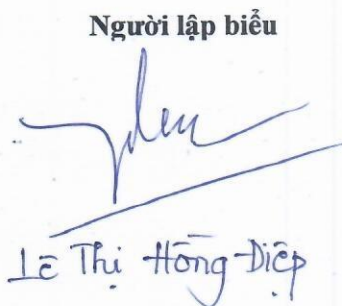 Người lập biểu
Lê Thị Hồng Diệp